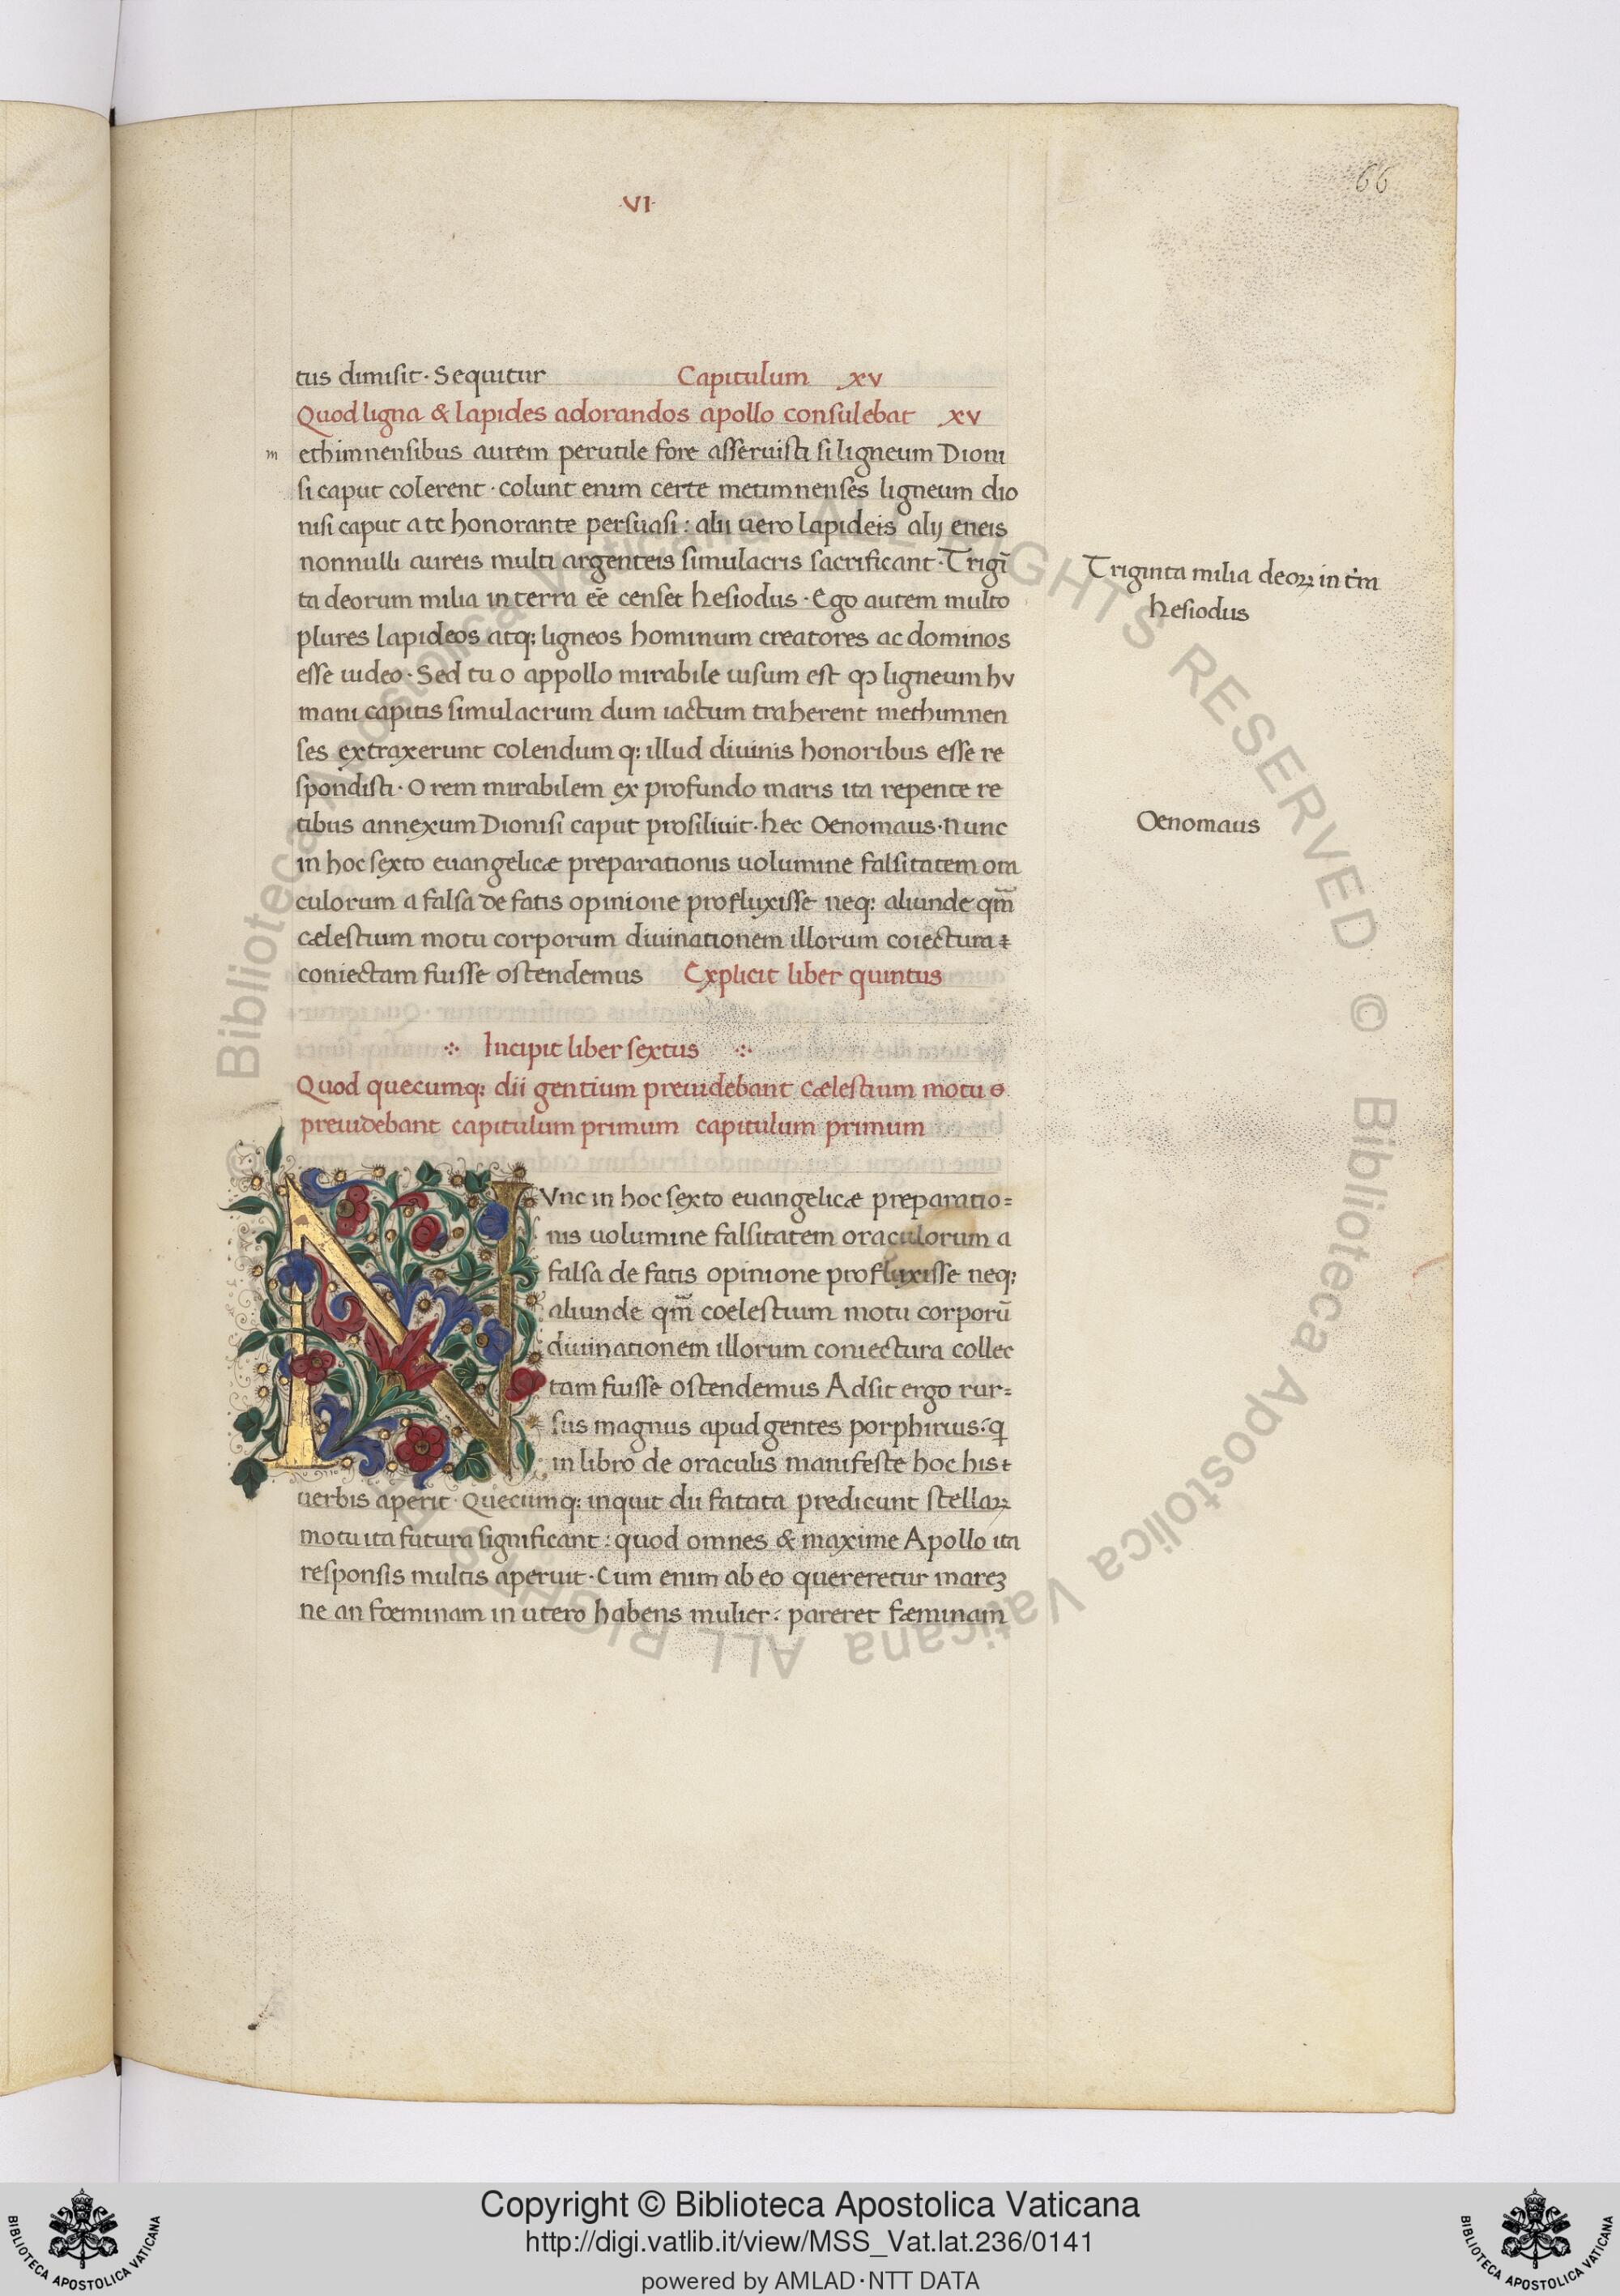 66
·VI·
tus dimisit· Sequitur Capitulum xv
Quod ligna & lapides adorandos apollo consulebat xv
m ethimnensibus autem perutile fore asseruisti si ligneum Dioni
si caput colerent· colunt enim certe metimnenses ligneum dio
nisi caput a te honorante persuasi: alii uero lapideis alij eneis
nonnulli aureis multi argenteis simulacris sacrificant· Trigī
ta deorum milia in terra eē censet hesiodus· Ego autem multo
Triginta milia deoꝝ in t'ra
hesiodus
plures lapideos atq; ligneos hominum creatores ac dominos
esse uideo· Sed tu o appollo mirabile uisum est ꝙ ligneum hu
mani capitis simulacrum dum iactum traherent methimnen
ses extraxerunt colendum q; illud diuinis honoribus esse re
spondisti· O rem mirabilem ex profundo maris ita repente re
tibus annexum Dionisi caput prosiliuit· hec Oenomaus· Nunc
Oenomaus
in hoc sexto euangelicæ preparationis uolumine falsitatem ora
culorum a falsa de fatis opinione profluxisse neq; aliunde qm̄
cælestium motu corporum diuinationem illorum coiectura
coniectam fuisse ostendemus Explicit liber quintus
Incipit liber sextus
Quod quecumq; dii gentium preuidebant cælestium motu
preuidebant capitulum primum capitulum primum
NVnc in hoc sexto euangelicæ preparatio=
nis uolumine falsitatem oraculorum a
falsa de fatis opinione profluxisse neq;
aliunde qm̄ coelestium motu corporū
diuinationem illorum coniectura collec
tam fuisse ostendemus Adsit ergo rur=
sus magnus apud gentes porphirius: q
in libro de oraculis manifeste hoc his
uerbis aperit· Quecumq; inquit dii fatata predicunt stellaꝝ
motu ita futura significant: quod omnes & maxime Apollo ita
responsis multis aperuit· Cum enim ab eo quereretur mareꝫ
ne an foeminam in utero habens mulier: pareret fæminam
Copyright © Biblioteca Apostolica Vaticana
http://digi.vatlib.it/view/MSS_Vat.lat.236/0141
powered by AMLAD·NTT DATA
BIBLIOTECA APOSTOLICA VATICANA
BIBLIOTECA APOSTOLICA VATICANA
Biblioteca Apostolica Vaticana ALL RIGHTS RESERVED © Biblioteca Apostolica Vaticana ALL RIGHTS